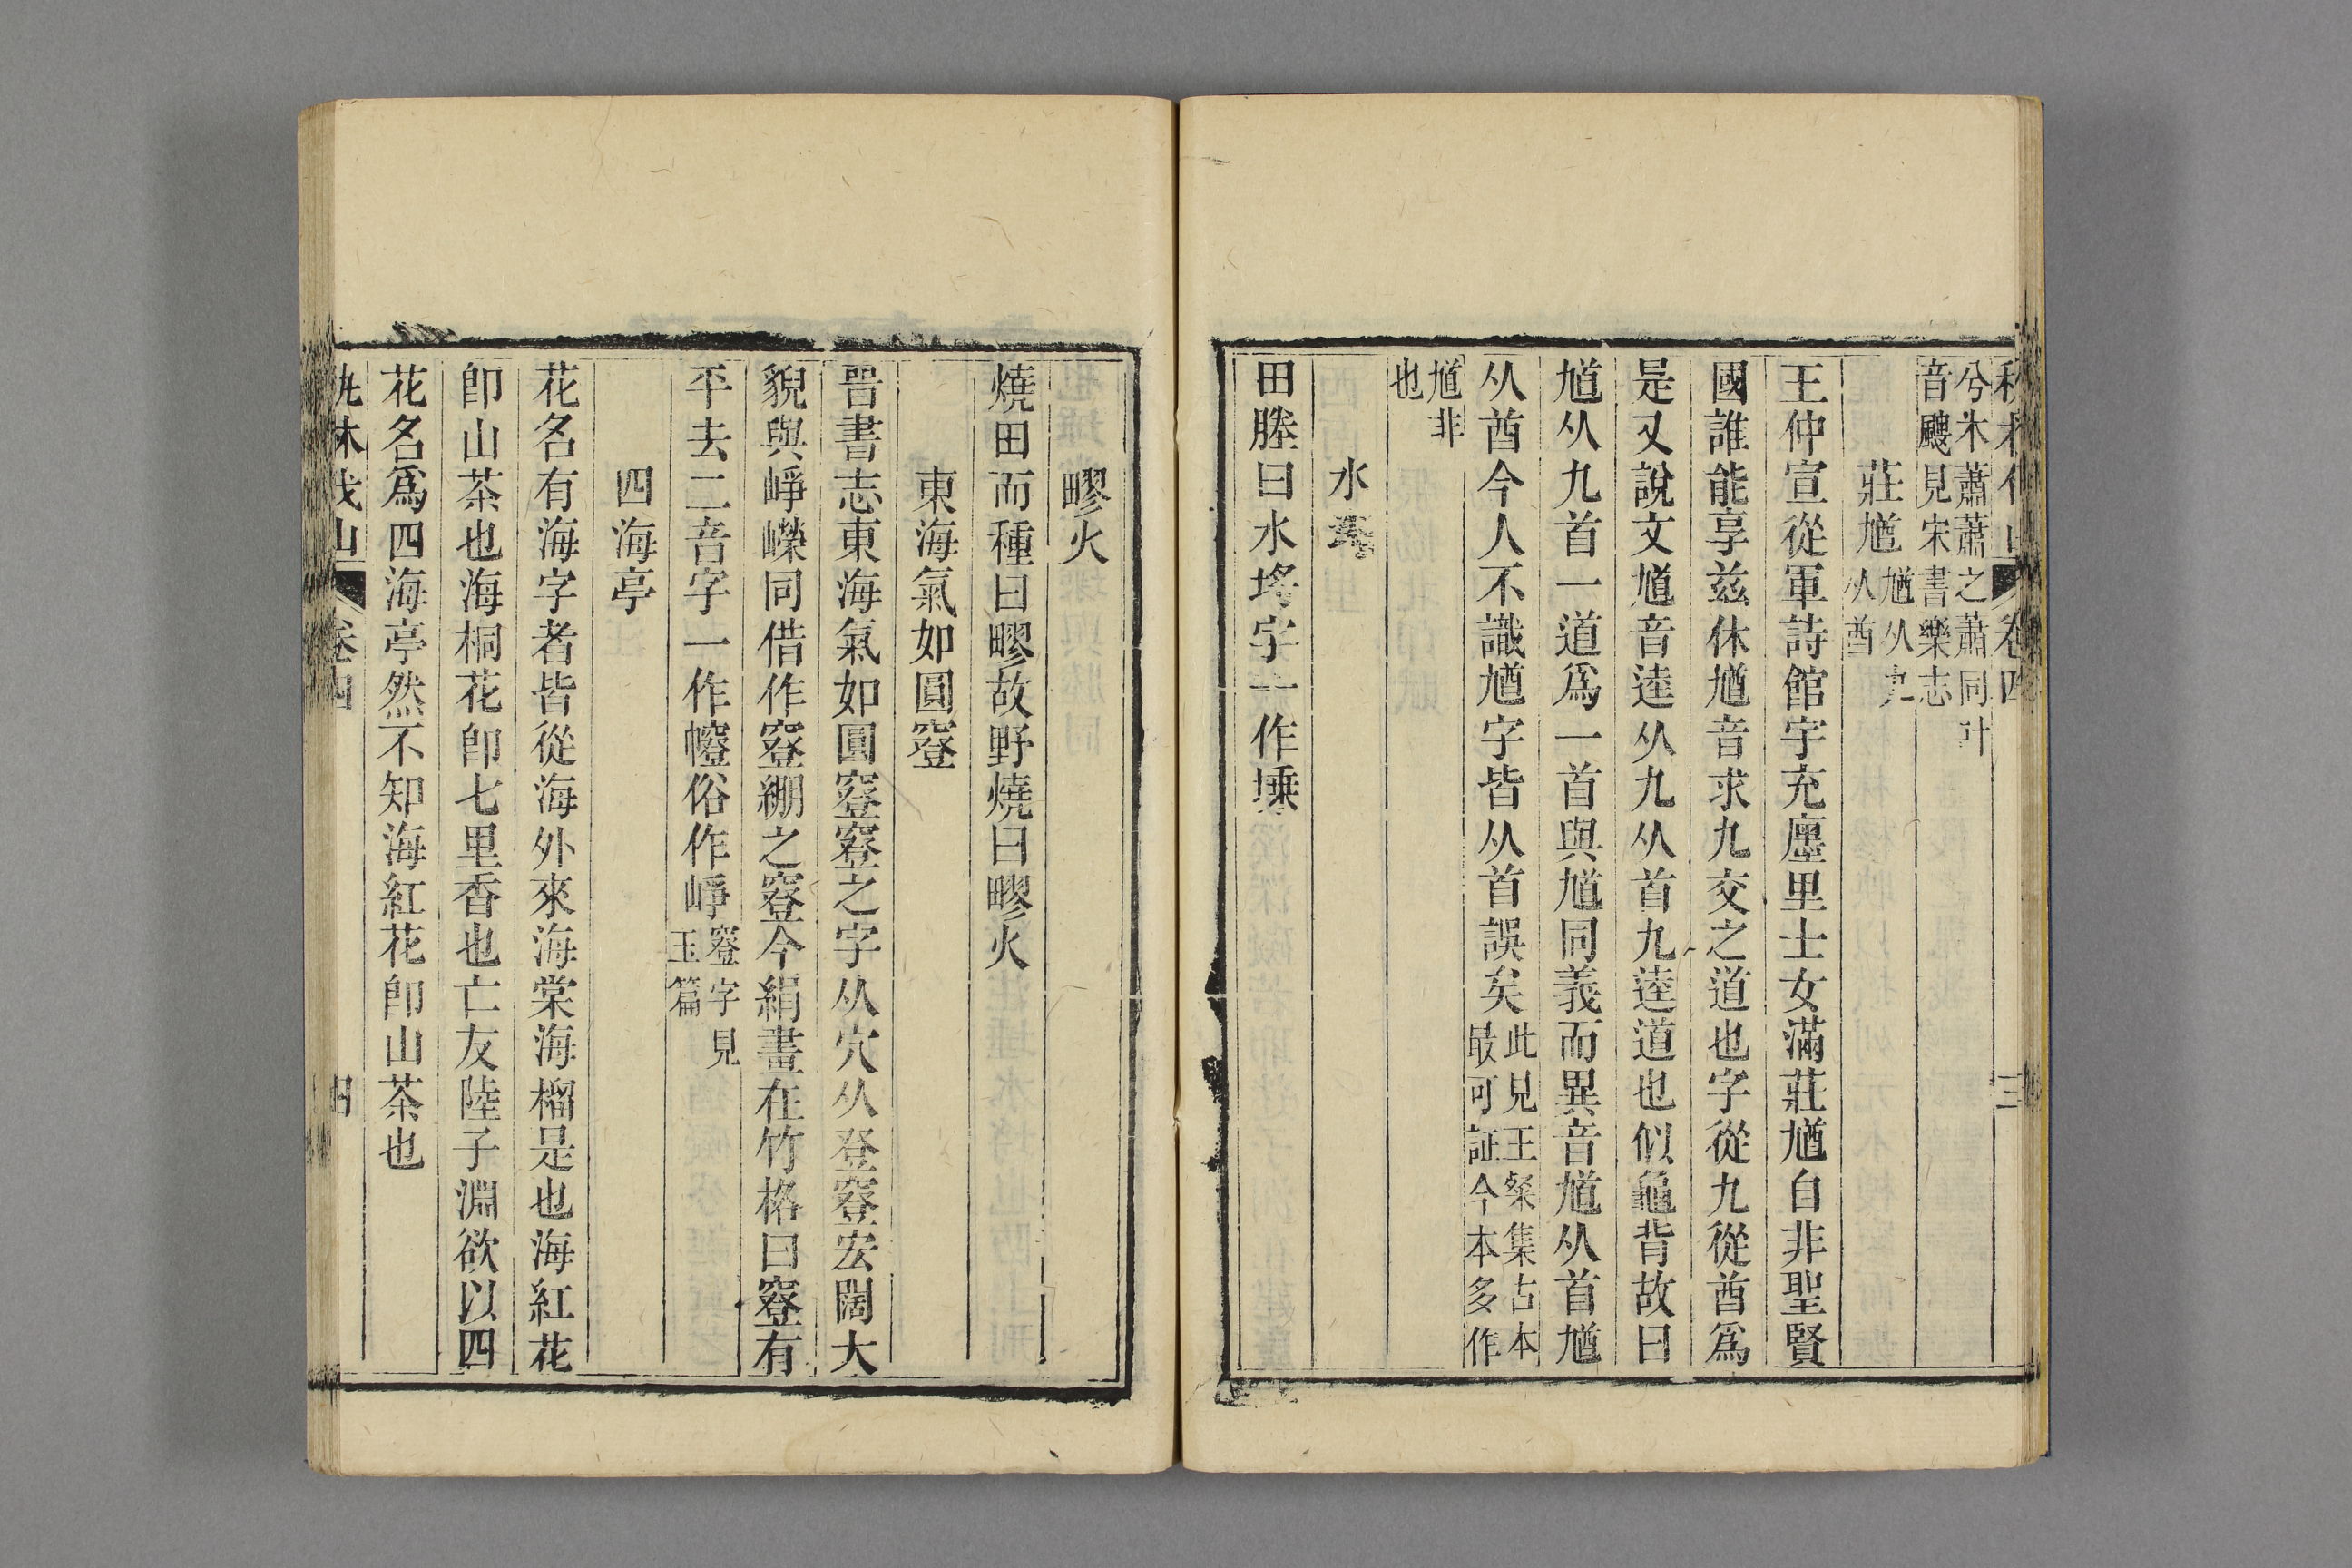 兮木蕭蕭之蕭同叶
音颼見宋書樂志
莊馗馗从九
从酋
王仲宣從軍詩館宇充廛里士女滿莊馗自非聖賢
國誰能享兹休馗音求九交之道也字從九從酋爲
是又說文馗音逵从九从首九逵道也似龜背故曰
馗从九首一道爲一首與馗同義而異音馗从首馗
从酋今人不識馗字皆从首誤矣此見王粲集古本
最可証今本多作
馗非
也
水
田塍曰水㙅字一作埵
疁火
燒田而種曰疁故野燒曰疁火
東海氣如圓䆸
晉書志東海氣如圓䆸䆸之字从穴从登䆸宏闊大
貌與崢嶸同借作䆸繃之䆸今絹畫在竹格曰䆸有
平去二音字一作㡧俗作崢䆸字見
玉篇
四海亭
花名有海字者皆從海外來海棠海榴是也海紅花
卽山茶也海桐花卽七里香也亡友陸子淵欲以四
花名爲四海亭然不知海紅花卽山茶也
林伐山
卷四
四